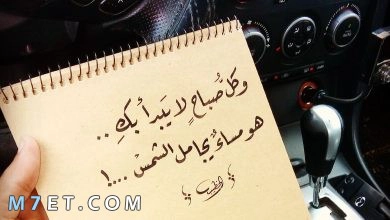 وكل صُباحٍ لا يَبدأ بكِ ..
هو مساءٌ يجامل الشمسْ ....!
M7ET.COM